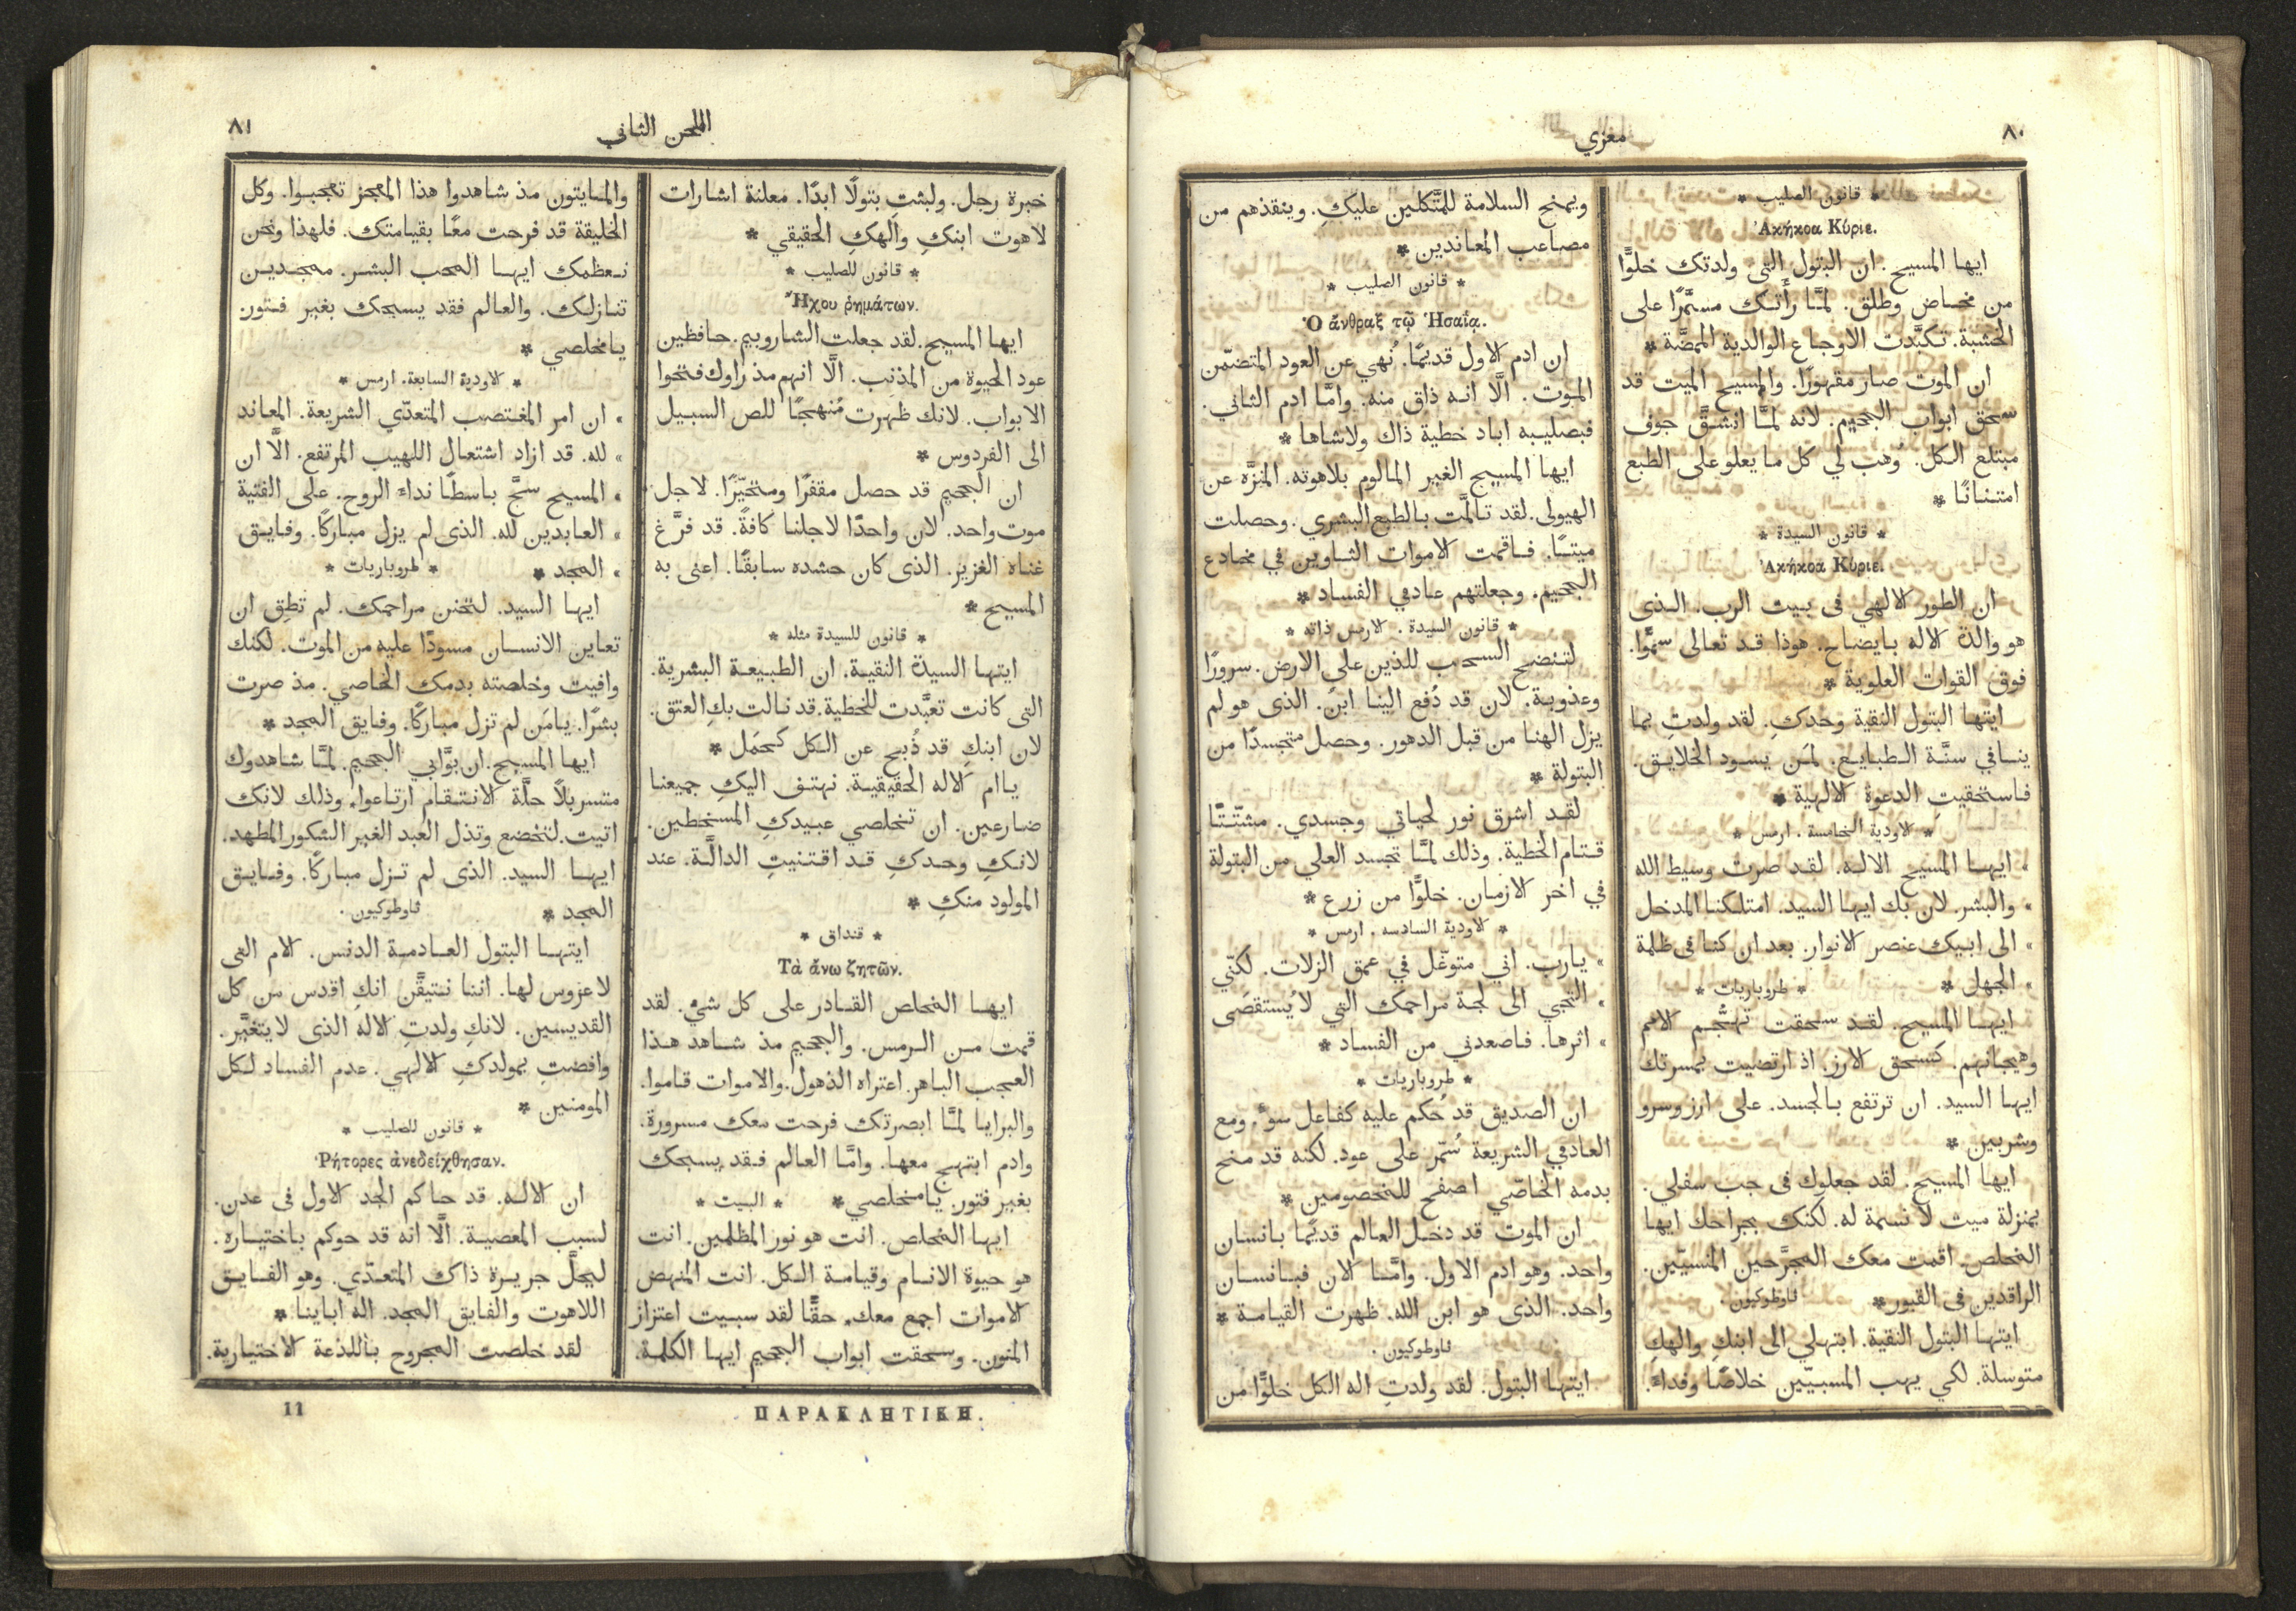 ٨٠
مغزي
* قانون الصليب *
Ἀκήκοα Κύριε.
ايها المسيح. ان البتول التى ولدتك خلوًّا
من مخاض وطلق. لمَّا رأَتك مسمَّرًا على
الخشبة. تكبَّدت الاوجاع الوالدية الممضَّة *
ان الموت صار مقهورًا. والمسيح الميت قد
سحق ابواب الجحيم. لانه لمَّا انشقَّ جوف
مبتلع الكل. وُهب لي كل ما يعلو على الطبع
امتنانًا *
* قانون السيدة *
Ἀκήκοα Κύριε.
ان الطور الالهي فى بيت الرب. الذى
هو والدة الاله بايضاح. هوذا قد تعالى سموًّا.
فوق القوات العلوية *
ايتها البتول النقية وحدكِ. لقد ولدتِ بما
ينافي سنَّة الطبايع. لمَن يسود الخلايق.
فاستحقيتِ الدعوة الالهية *
* الاودية الخامسة. ارمس *
» ايها المسيح الاله. لقد صرت وسيط الله
» والبشر. لان بك ايها السيد. امتلكنا المدخل
» الى ابيك عنصر الانوار. بعد ان كنا فى ظلمة
» الجهل * * طروباريات *
ايها المسيح. لقد سحقت تهجُّم الامم
وهيجانهم. كسحق الارز. اذ ارتضيت بمسرتك
ايها السيد. ان ترتفع بالجسد. على ارز وسرو
وشربين *
ايها المسيح. لقد جعلوك فى جب سفلي.
بمنزلة ميت لا نسمة له. لكنك بجراحك ايها
المخلص. اقمت معك المجرَّحين المنسيّين.
الراقدين فى القبور * ثاوطوكيون.
ايتها البتول النقية. ابتهلي الى ابنكِ والهكِ
متوسلة. لكي يهب المسبيّين خلاصًا وفداءً.
ويمنح السلامة للمتَّكلين عليكِ. وينقذهم من
مصاعب المعاندين *
* قانون الصليب *
Ὁ ἄνθραξ τῷ Ἡσαΐᾳ.
ان ادم الاول قديمًا. نُهي عن العود المتضمّن
الموت. الَّا انه ذاق منه. وامَّا ادم الثاني.
فبصليبه اباد خطية ذاك ولاشاها *
ايها المسيح الغير المالوم بلاهوته. المنزَّه عن
الهيولى. لقد تالمَّت بالطبع البشري. وحصلت
ميتًا. فاقمت الاموات الثاوين في مخادع
الجحيم. وجعلتهم عادمي الفساد *
* قانون السيدة. الارمس ذاته *
لتنضح السحب للذين على الارض. سرورًا
وعذوبة. لان قد دُفع الينا ابنٌ. الذى هو لم
يزل الهنا من قبل الدهور. وحصل متجسدًا من
البتولة *
لقد اشرق نور لحياتي وجسدي. مشتّتًا
قتام الخطية. وذلك لمَّا تجسد العلي من البتولة
في اخر الازمان. خلوًّا من زرع *
* الاودية السادسه. ارمس *
» يارب. اني متوغّل في عمق الزلات. لكنّي
» التجي الى لجة مراحمك التي لا يُستقصَى
» اثرها. فاصعدني من الفساد *
* طروباريات *
ان الصديق قد حُكم عليه كفاعل سوٍ. ومع
العادمي الشريعة سُمّر على عود. لكنه قد منح
بدمه الخاصّي اصفح للخصومين *
ان الموت قد دخل العالم قديمًا بانسان
واحد. وهو ادم الاول. وامَّا الان فبانسان
واحد. الذى هو ابن الله. ظهرت القيامة *
ثاوطوكيون.
ايتها البتول. لقد ولدتِ اله الكل خلوًّا من
اللحن الثاني
٨١
خبرة رجل. ولبثتِ بتولًا ابدًا. معلنة اشارات
لاهوت ابنكِ والهكِ الحقيقي *
* قانون للصليب *
Ἤχου ῥημάτων.
ايها المسيح. لقد جعلت الشاروبيم. حافظين
عود الحيوة من المذنب. الَّا انهم مذ راوك فتحوا
الابواب. لانك ظهرت مُنهجًا للص السبيل
الى الفردوس *
ان الجحيم قد حصل مقفرًا ومتحيّرًا. لاجل
موت واحد. لان واحدًا لاجلنا كافةً. قد فرَّغ
غناه الغزير. الذى كان حشده سابقًا. اعنى به
المسيح *
* قانون للسيدة مثله *
ايتها السيدة النقية. ان الطبيعة البشرية.
التى كانت تعبَّدت للخطية. قد نالت بكِ العتق.
لان ابنكِ قد ذُبح عن الكل كحمَل *
ياام الاله الحقيقية. نهتف اليكِ جميعنا
ضارعين. ان تخلصي عبيدكِ المسخطين.
لانكِ وحدكِ قد اقتنيتِ الدالَّة. عند
المولود منكِ *
* قنداق *
Τὰ ἄνω ζητῶν.
ايها المخلص القادر على كل شيٍ. لقد
قمت من الرمس. والجحيم مذ شاهد هذا
العجب الباهر. اعتراه الذهول. والاموات قاموا.
والبرايا لمَّا ابصرتك فرحت معك مسرورة.
وادم ابتهج معها. وامَّا العالم فقد يسبحك
بغير فتور يامخلصي * * البيت *
ايها المخلص. انت هو نور المظلمين. انت
هو حيوة الانام وقيامة الكل. انت المنهض
الاموات اجمع معك. حقًّا لقد سبيت اعتزاز
المنون. وسحقت ابواب الجحيم ايها الكلمة.
والمايتون مذ شاهدوا هذا المعجز تعجبوا. وكل
الخليقة قد فرحت معًا بقيامتك. فلهذا ونحن
نعظمك ايها المحب البشر. ممجدين
تنازلك. والعالم فقد يسبحك بغير فتور
يامخلصي *
* الاودية السابعة. ارمس *
» ان امر المغتصب المتعدّي الشريعة. المعاند
» لله. قد ازاد اشتعال اللهيب المرتفع. الَّا ان
» المسيح سحَّ باسطًا نداء الروح. على الفتية
» العابدين لله. الذى لم يزل مباركًا. وفايق
» المجد * * طروباريات *
ايها السيد. لتحنن مراحمك. لم تطق ان
تعاين الانسان مسودًا عليه من الموت. لكنك
وافيت وخلصته بدمك الخاصي. مذ صرت
بشرًا. يامَن لم تزل مباركًا. وفايق المجد *
ايها المسيح. ان بوَّابي الجحيم. لمَّا شاهدوك
متسربلًا حلَّة الانتقام ارتاعوا. وذلك لانك
اتيت. لتخضع وتذل العبد الغير الشكور المطهد.
ايها السيد. الذى لم تزل مباركًا. وفايق
المجد * ثاوطوكيون.
ايتها البتول العادمة الدنس. الام التى
لا عروس لها. اننا نتيقَّن انكِ اقدس من كل
القديسين. لانكِ ولدتِ الاله الذى لا يتغيَّر.
وافضتِ بمولدكِ الالهي. عدم الفساد لكل
المومنين *
* قانون للصليب *
Ῥήτορες ἀνεδείχθησαν.
ان الاله. قد حاكم الجد الاول فى عدن.
لسبب المعصية. الَّا انه قد حوكم باختياره.
ليحلَّ جريرة ذاك المتعدّي. وهو الفايق
اللاهوت والفايق المجد. اله اباينا *
لقد خلصت المجروح باللذعة الاختيارية.
ΠΑΡΑΚΛΗΤΙΚΗ.
11